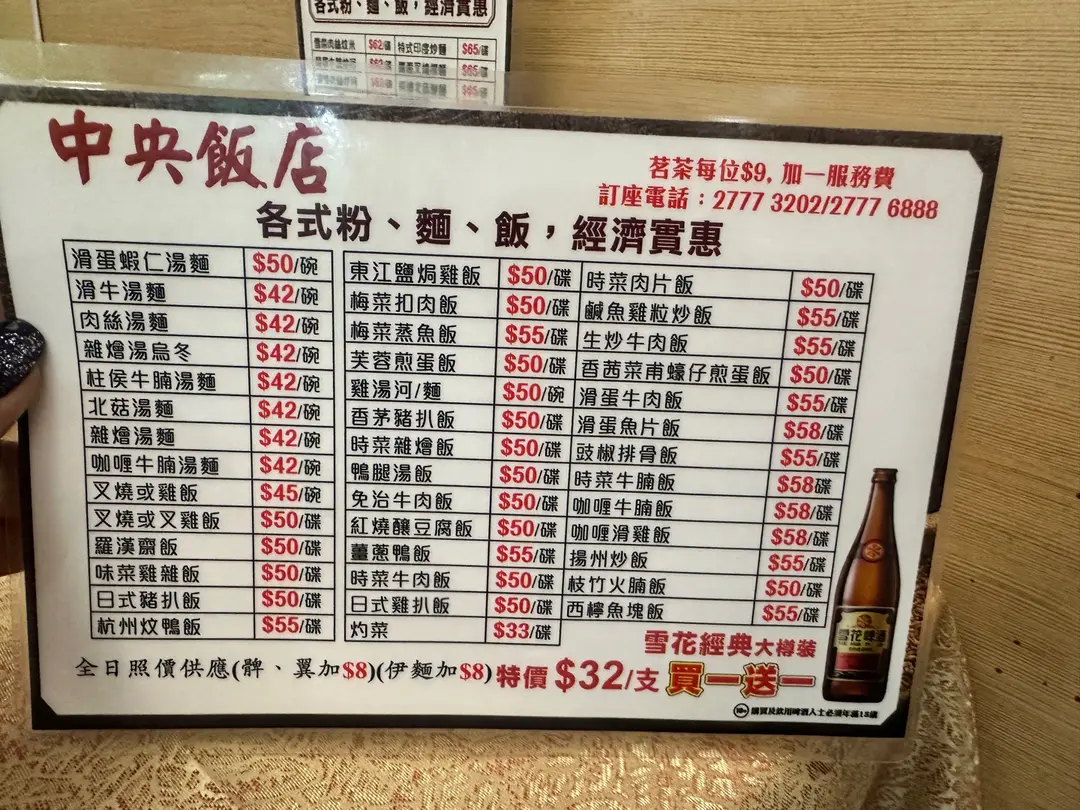 各式粉、麵、飯，經濟實惠
雪菜肉絲炆米 $62/碟 特式印度炒麵 $65/碟
$65/碟
中央飯店
茗茶每位$9，加一服務費
訂座電話：2777 3202/2777 6888
各式粉、麵、飯，經濟實惠
滑蛋蝦仁湯麵 $50/碗
滑牛湯麵 $42/碗
肉絲湯麵 $42/碗
雜燴湯烏冬 $42/碗
柱侯牛腩湯麵 $42/碗
北菇湯麵 $42/碗
雜燴湯麵 $42/碗
咖喱牛腩湯麵 $42/碗
叉燒或雞飯 $45/碗
叉燒或叉雞飯 $50/碟
羅漢齋飯 $50/碟
味菜雞雜飯 $50/碟
日式豬扒飯 $50/碟
杭州炆鴨飯 $55/碟
東江鹽焗雞飯 $50/碟
梅菜扣肉飯 $50/碟
梅菜蒸魚飯 $55/碟
芙蓉煎蛋飯 $50/碟
雞湯河/麵 $50/碗
香茅豬扒飯 $50/碟
時菜雜燴飯 $50/碟
鴨腿湯飯 $50/碟
免治牛肉飯 $50/碟
紅燒釀豆腐飯 $50/碟
薑蔥鴨飯 $55/碟
時菜牛肉飯 $50/碟
日式雞扒飯 $50/碟
灼菜 $33/碟
時菜肉片飯 $50/碟
鹹魚雞粒炒飯 $55/碟
生炒牛肉飯 $55/碟
香茜菜甫蠔仔煎蛋飯 $50/碟
滑蛋牛肉飯 $55/碟
滑蛋魚片飯 $58/碟
豉椒排骨飯 $55/碟
時菜牛腩飯 $58碟
咖喱牛腩飯 $58/碟
咖喱滑雞飯 $58/碟
揚州炒飯 $55/碟
枝竹火腩飯 $50/碟
西檸魚塊飯 $55/碟
全日照價供應(髀、翼加$8)(伊麵加$8)
雪花經典大樽裝
特價 $32/支 買一送一
雪花啤酒
18+ 購買及飲用啤酒人士必須年滿18歲